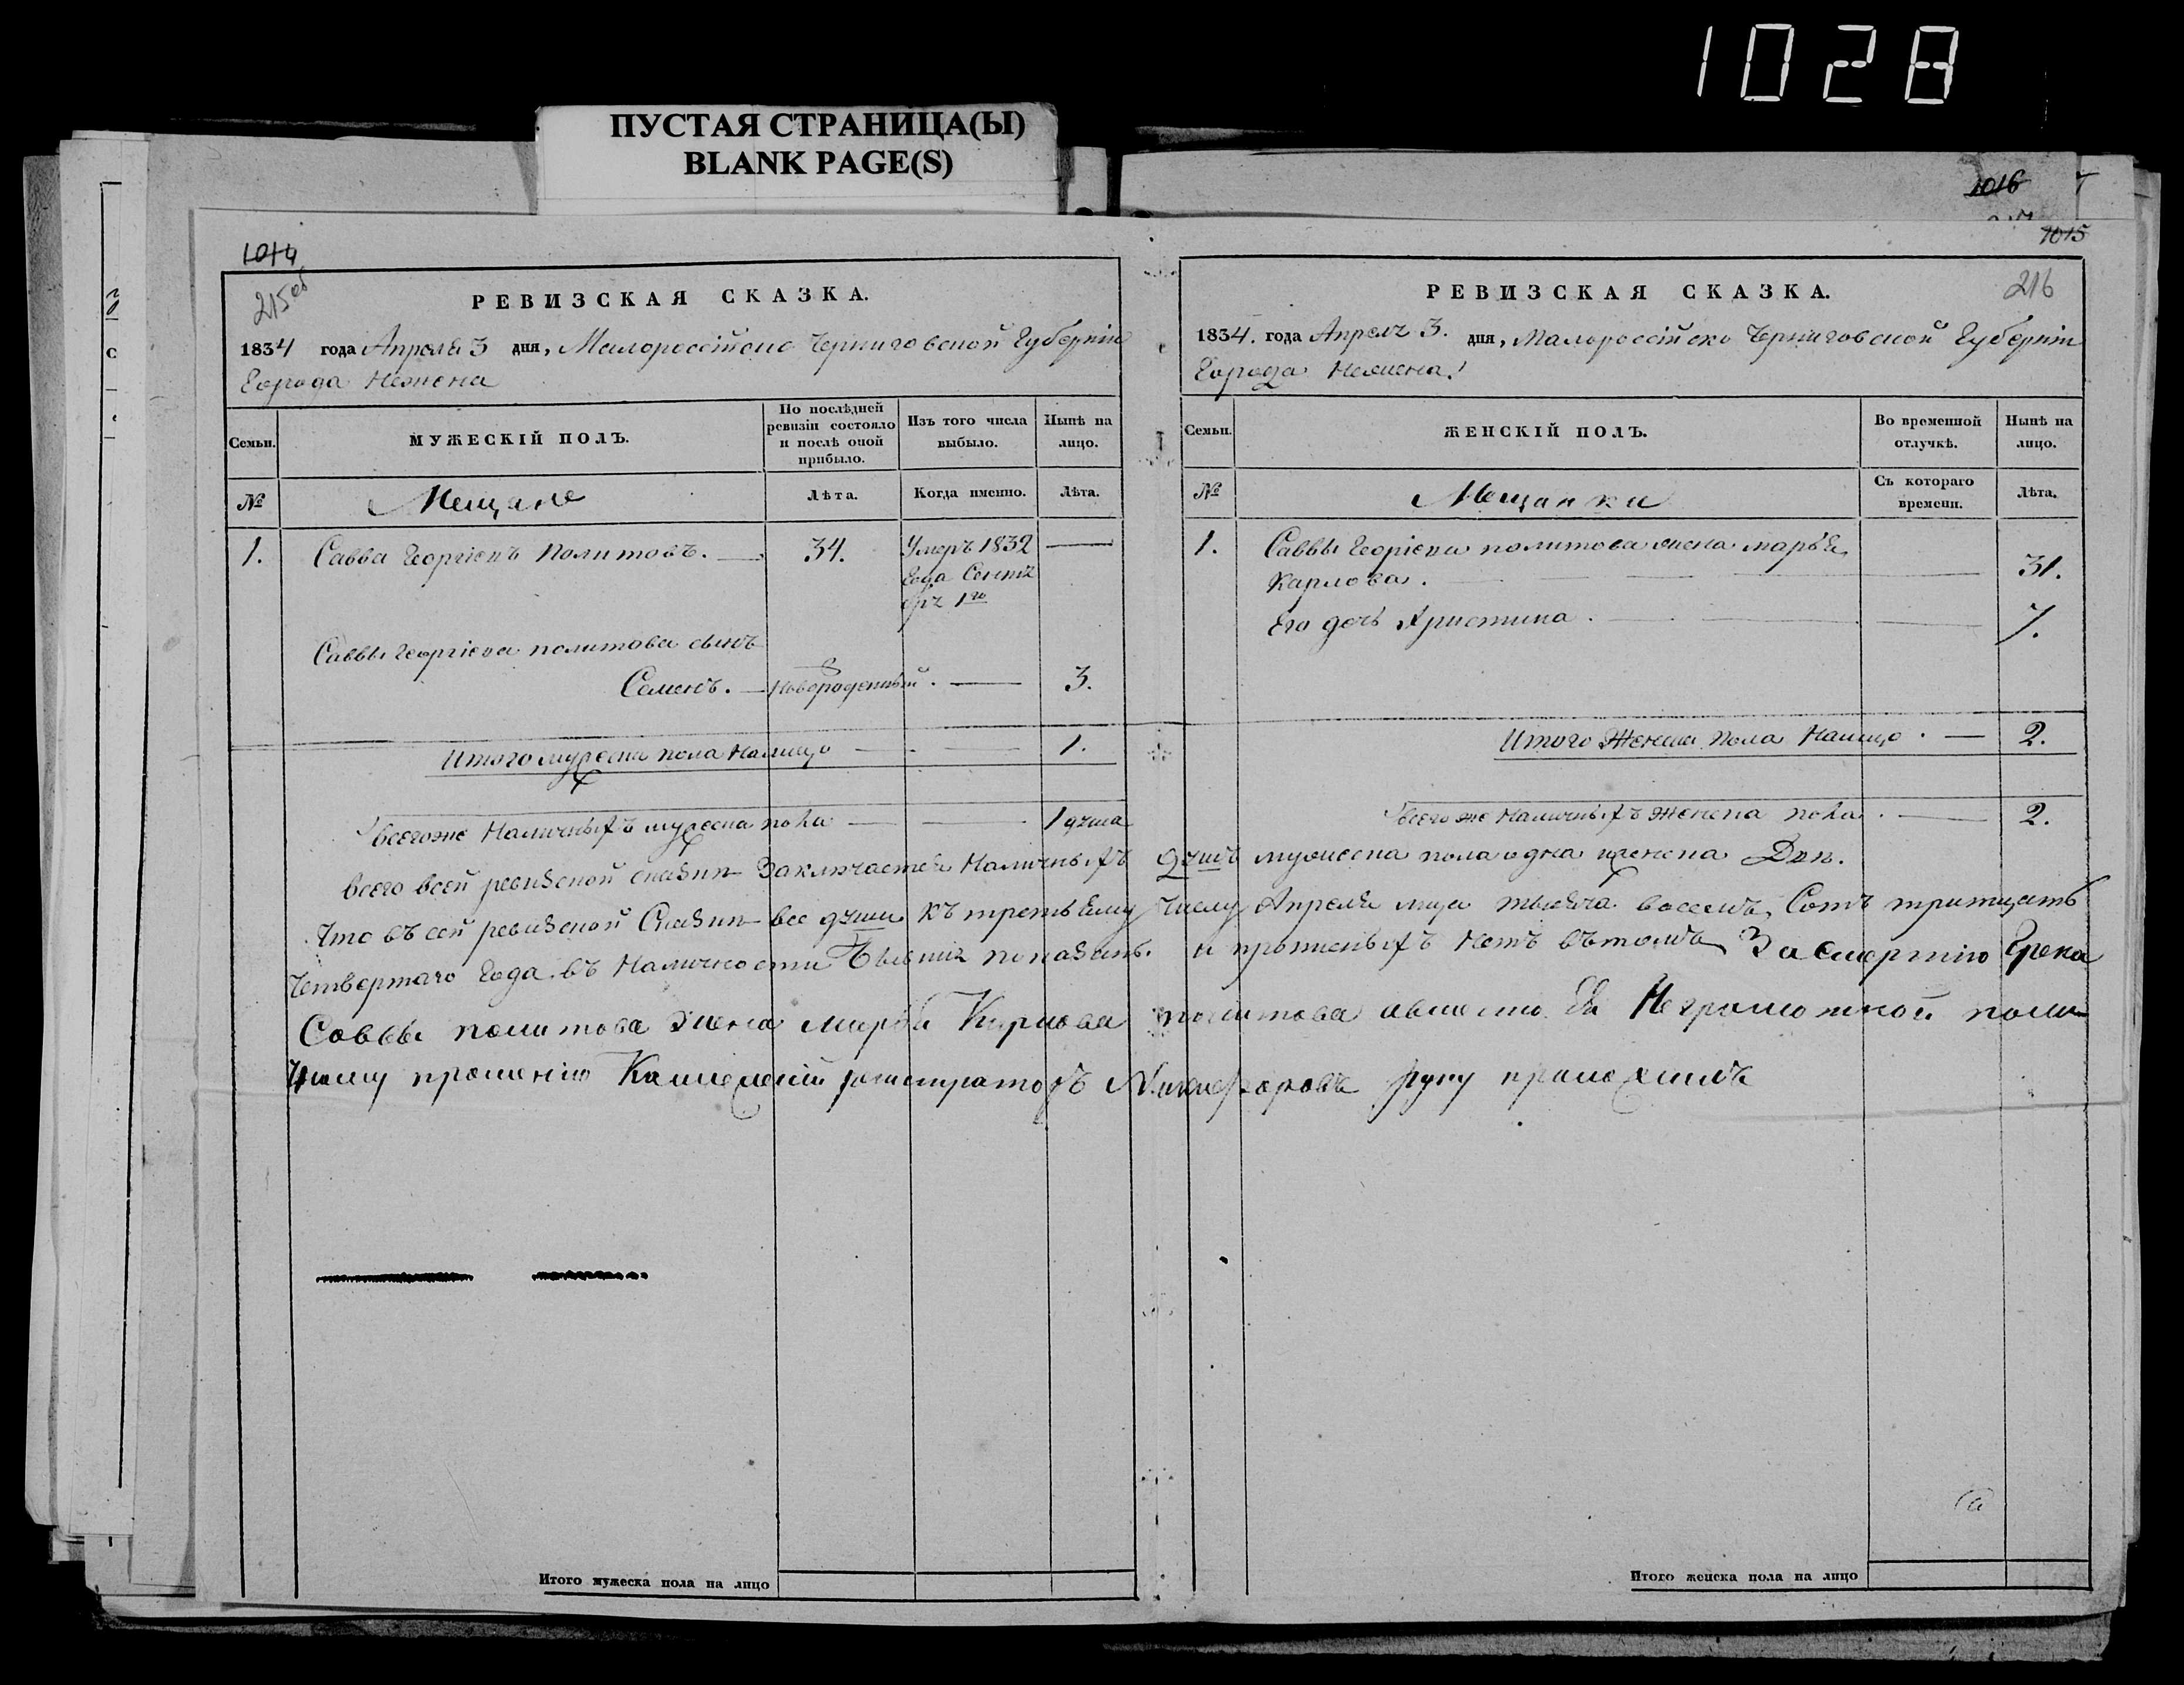 1028
ПУСТАЯ СТРАНИЦА(Ы)
BLANK PAGE(S)
1016
1014
215об
РЕВИЗСКАЯ СКАЗКА.
1834 года Апреля 3 дня, Малороссійско Черниговской Губерніи
Города Нежена
Семьи.
МУЖЕСКІЙ ПОЛЪ.
По послѣдней ревизіи состояло и послѣ оной прибыло.
Изъ того числа выбыло.
Нынѣ на лицо.
№
Мещане
Лѣта.
Когда именно.
Лѣта.
1. Савва Георгіевъ Политовъ. 34. Умеръ 1832
года Сентя
бря 1го
Саввы Георгіева политова сынъ
Семенъ. — Новорожденный. — 3.
Итого мужеска пола Налицо — 1.
Всегоже Наличныхъ мужеска пола — 1 душа
1015
216
РЕВИЗСКАЯ СКАЗКА.
1834. года Апреля 3. дня, Малороссійско Черниговской Губерніи
Города Нежена.
Семьи.
ЖЕНСКІЙ ПОЛЪ.
Во временной отлучкѣ.
Нынѣ на лицо.
№
Мещанки
Съ котораго времени.
Лѣта.
1. Саввы Георгіева политова жена марья
Карлова. 31.
Его дочь Христина. 7.
Итого Женска Пола Налицо. — 2.
Всего же Наличныхъ женска пола. — 2.
Всего всей ревизской сказки Заключается Наличныхъ душъ мужеска пола одна женска Две.
Что въ сей ревизской Сказки все души къ третьему числу Апреля мца тысяча восемь Сотъ тритцать
Четвертаго Года въ Наличности Бывшия показаны. и прописныхъ Нетъ вътомъ За смертию Грека
Саввы политова жена марья Карлова политова авместо Ея Неграмотной поли
Чному прошению Колежский регистраторъ Никифоровъ руку приложилъ
Итого мужеска пола на лицо
Итого женска пола на лицо